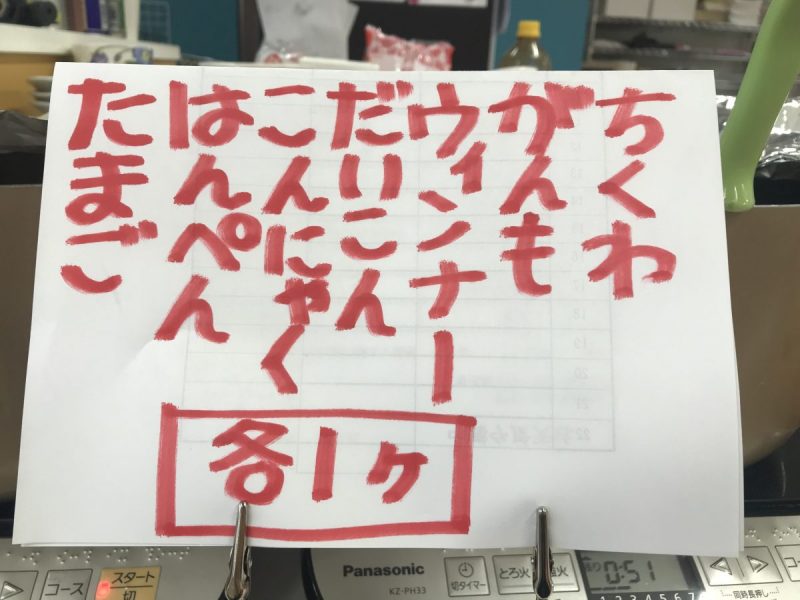 ちくわ
がんも
ウィンナー
だいこん
こんにゃく
はんぺん
たまご
各1ケ
Panasonic
KZ-PH33
コース
スタート
切
切タイマー
とろ火
0:51
1 2 3 4 5 6 7
同時長押し